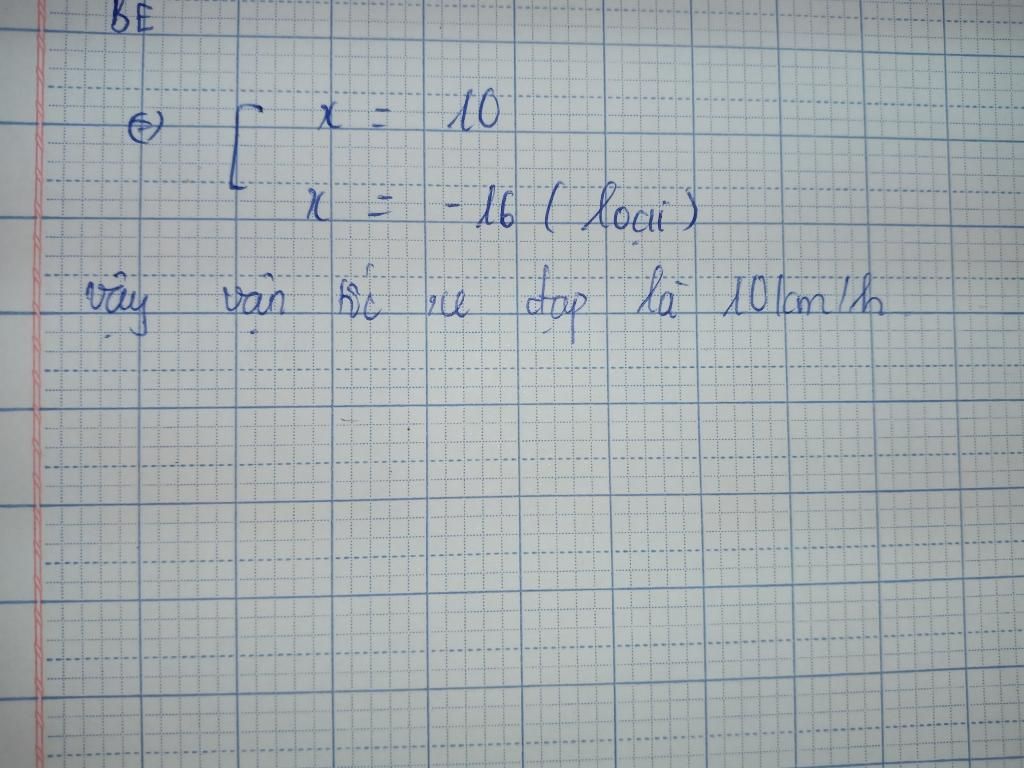 BE
⇔ [ x = 10
x = -16 (loại)
vậy vận tốc xe đạp là 10km/h